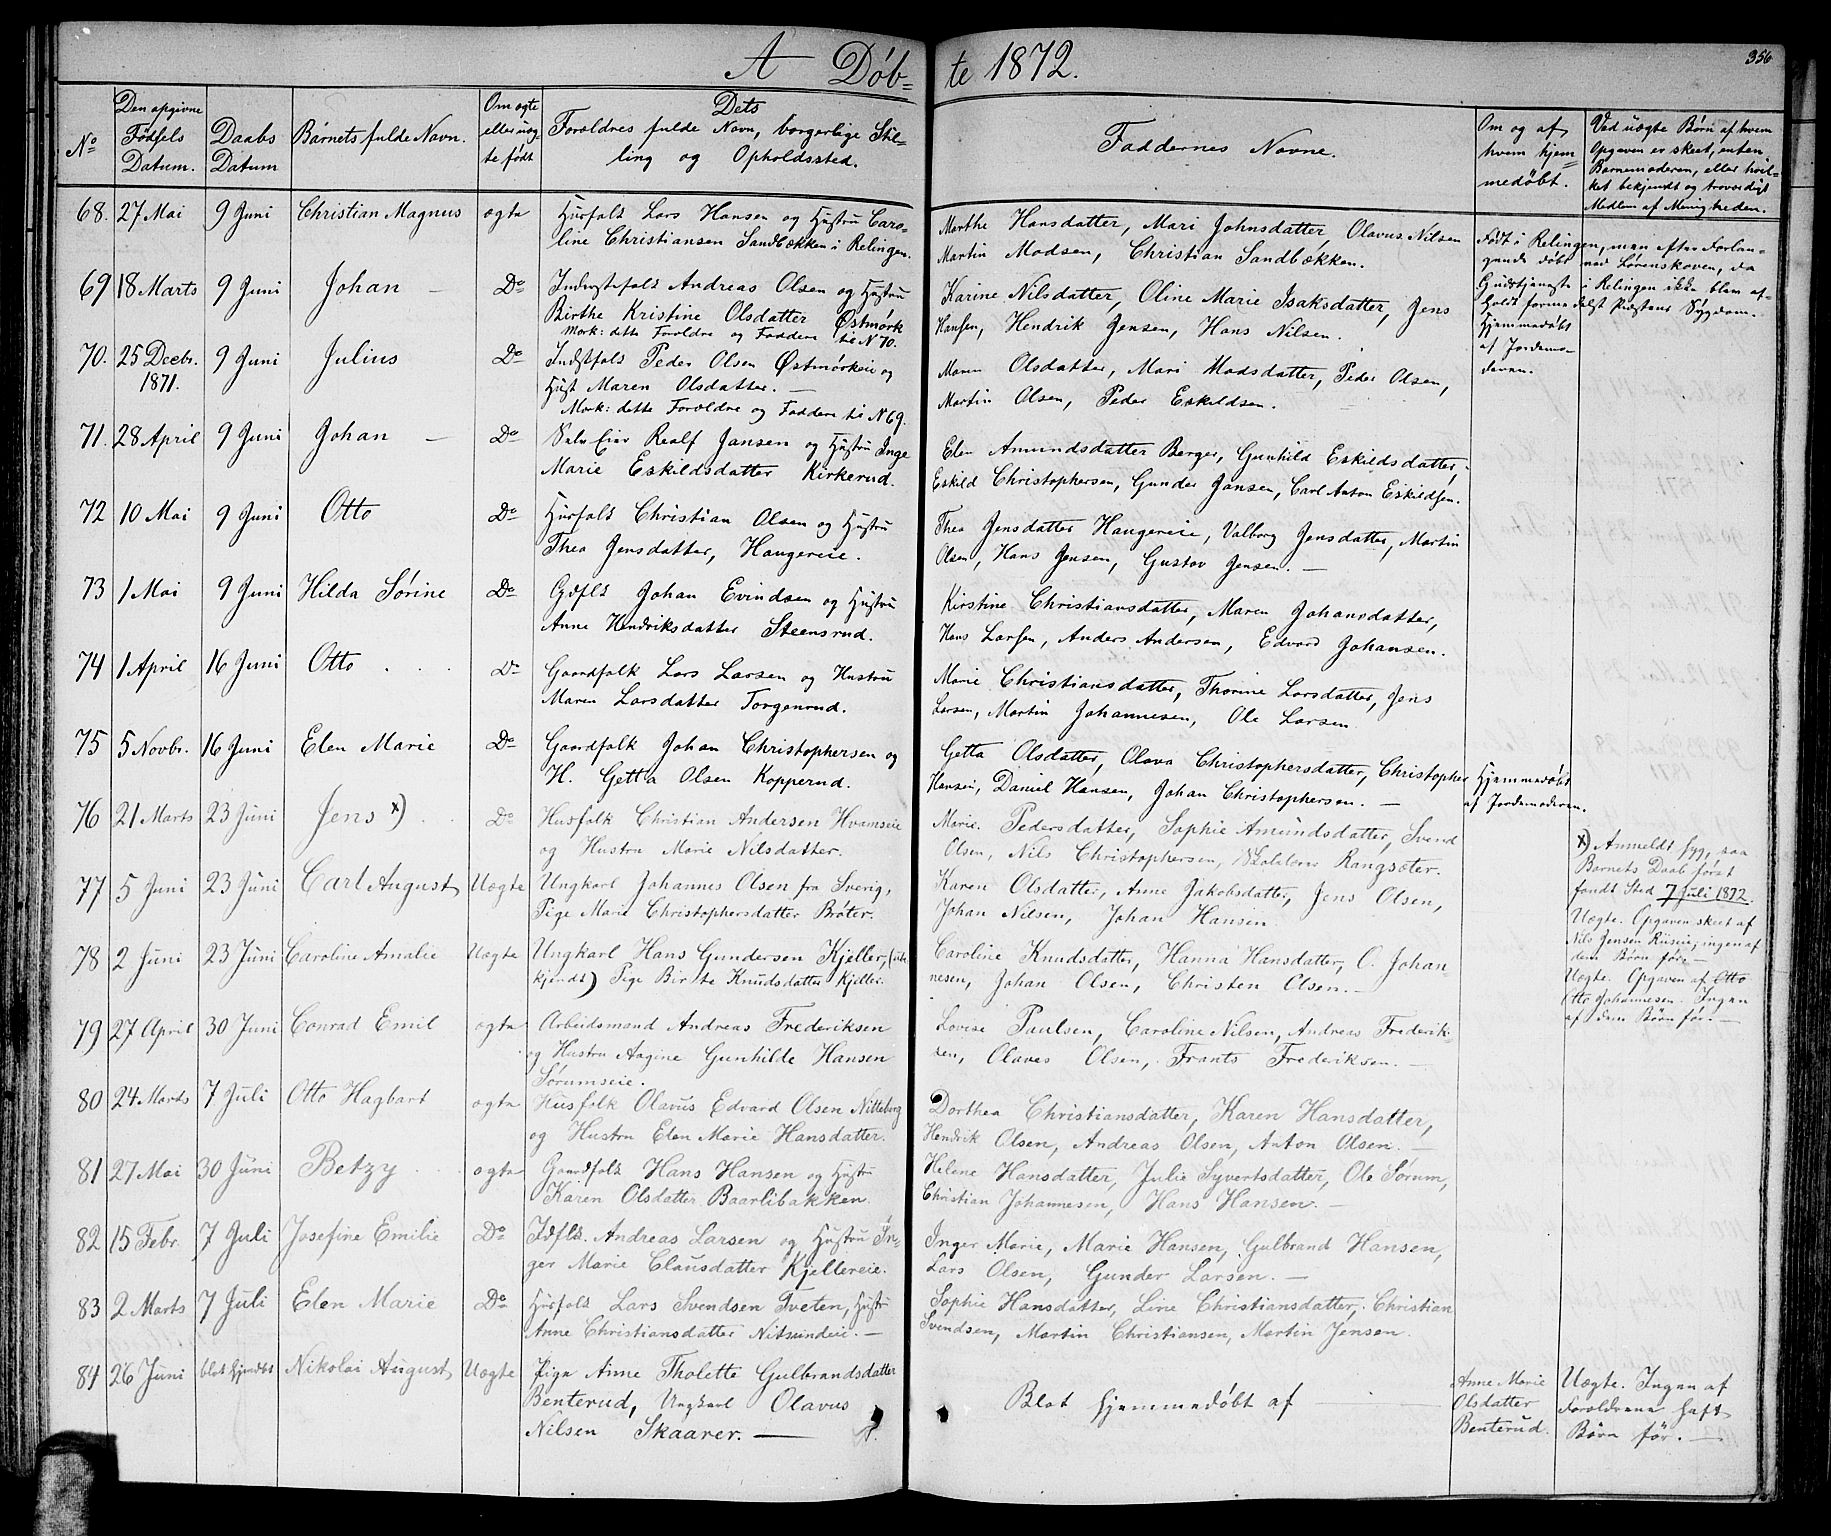 A Døb= te 1872.
356
No
Den opgivne Fødsels Datum.
Daabs Datum
Barnets fulde Navn.
Om ægte eller uæg- te født
Dets Forældres fulde Navn, borgerlige Stil- ling og Opholdssted.
Faddernes Navne.
Om og af hvem hjem= medøbt.
Ved uægte Børn af hvem Opgaven er skeet, enten Barnemoderen, eller hvil- ket bekjendt og troværdigt Medlem af Menigheden.
68. 27 Mai 9 Juni Christian Magnus ægte Husfolk Lars Hansen og Hustru Caro-
line Christiansen Sandbækken i Relingen.
Marthe Hansdatter, Mari Johnsdatter Olavus Nilsen
Martin Madsen, Christian Sandbækken.
Født i Relingen, men efter Forlan-
gende døbt ved Lørenskoven, da
Gudstjeneste i Relingen ikke blev af-
holdt formedelst Præstens Sygdom.
69 18 Marts 9 Juni Johan – Do Inderstefolk Andreas Olsen og Hustru
Birthe Kristine Olsdatter Østmørk
Mærk: dette Forældre og Faddere til N 70.
Karine Nilsdatter, Oline Marie Isaksdatter, Jens
Hansen, Hendrik Jensen, Hans Nilsen.
Hjemmedøbt
af Jordemo-
deren.
70. 25 Decbr. 1871. 9 Juni Julius Do Indstfolk Peder Olsen Østmørkeie og
Hust Maren Olsdatter. –
Mærk: dette Forældre og Faddere til N 69.
Maren Olsdatter, Mari Madsdatter, Peder Olsen,
Martin Olsen, Peder Eskildsen.
71. 28 April 9 Juni Johan – Do Selveier Realf Jansen og Hustru Inge
Marie Eskildsdatter Kirkerud.
Elen Amundsdatter Berger, Gunhild Eskildsdatter,
Eskild Christophersen, Gunder Jansen, Carl Anton Eskildsen.
72 10 Mai 9 Juni Otto Do Husfolk Christian Olsen og Hustru
Thea Jensdatter, Haugereie.
Thea Jensdatter Haugereie, Valborg Jensdatter, Martin
Olsen, Hans Jensen, Gustav Jensen. –
73 1 Mai 9 Juni Hilda Sørine Do Gdfls Johan Evindsen og Hustru
Anne Hendriksdatter Steensrud.
Kirstine Christiansdatter, Maren Johansdatter,
Hans Larsen, Anders Andersen, Edvard Johansen.
74 1 April 16 Juni Otto Do Gaardfolk Lars Larsen og Hustru
Maren Larsdatter Torgenrud.
Marie Christiansdatter, Thorine Larsdatter, Jens
Larsen, Martin Johannesen, Ole Larsen.
75 5 Novbr. 16 Juni Elen Marie Do Gaardfolk Johan Christophersen og
H. Getta Olsen Kopperud.
Getta Olsdatter, Olava Christophersdatter, Christopher
Hansen, Daniel Hansen, Johan Christophersen. –
Hjemmedøbt
af Jordemoderen.
76 21 Marts 23 Juni Jens x) Do Husfolk Christian Andersen Hvamseie
og Hustru Marie Nilsdatter.
Marie Pedersdatter, Sophie Amundsdatter, Svend
Olsen, Nils Christophersen, Rangsæter.
x) Anmeldt syg, saa
Barnets Daab først
fandt Sted 7 Juli 1872.
77 5 Juni 23 Juni Carl August Uægte Ungkarl Johannes Olsen fra Sverig,
Pige Marie Christophersdatter Brøter.
Karen Olsdatter, Anne Jakobsdatter, Jens Olsen,
Johan Nilsen, Johan Hansen.
Uægte. Opgaven skeet af
Nils Jensen Riiseie, ingen af
dem Børn før. –
78 2 Juni 23 Juni Caroline Amalie Uægte Ungkarl Hans Gundersen Kjeller, (ube-
kjendt) Pige Birthe Knudsdatter Kjeller.
Caroline Knudsdatter, Hanna Hansdatter, O. Johan-
nesen, Johan Olsen, Christen Olsen. –
Uægte. Opgaven af Otto
Otto Johannesen. Ingen
af dem Børn før. –
79 27 April 30 Juni Conrad Emil ægte Arbeidsmand Andreas Frederiksen
og Hustru Aagine Gunhilde Hansen
Sørumseie.
Lovise Paulsen, Caroline Nilsen, Andreas Frederik-
sen, Olaves Olsen, Frants Frederiksen. –
80 24 Marts 7 Juli Otto Hagbart ægte Husfolk Olavus Edvard Olsen Nitteberg
og Hustru Elen Marie Hansdatter.
Dorthea Christiansdatter, Karen Hansdatter,
Hendrik Olsen, Andreas Olsen, Anton Olsen. –
81 27 Mai 30 Juni Betzy ægte Gaardfolk Hans Hansen og Hustru
Karen Olsdatter Baarlibakken.
Helene Hansdatter, Julie Syvertsdatter, Ole Sørum,
Christian Johannesen, Hans Hansen. –
82 15 Febr. 7 Juli Josefine Emilie Do Idfls. Andreas Larsen og Hustru In-
ger Marie Clausdatter Kjellereie.
Inger Marie, Marie Hansen, Gulbrand Hansen,
Lars Olsen, Gunder Larsen. –
83 2 Marts 7 Juli Elen Marie Do Husfolk Lars Svendsen Tveten, Hustru
Anne Christiansdatter Nitsundeie. –
Sophie Hansdatter, Line Christiansdatter, Christian
Svendsen, Martin Christiansen, Martin Jensen.
84 26 Juni blot hjmdøbt Nikolai August Uægte Pige Anne Tholette Gulbrandsdatter
Benterud, Ungkarl Olavus
Nilsen Skaarer. –
Blot hjemmedøbt af
Anne Marie
Olsdatter
Benterud.
Uægte. Ingen af
Forældrene haft
Børn før. –